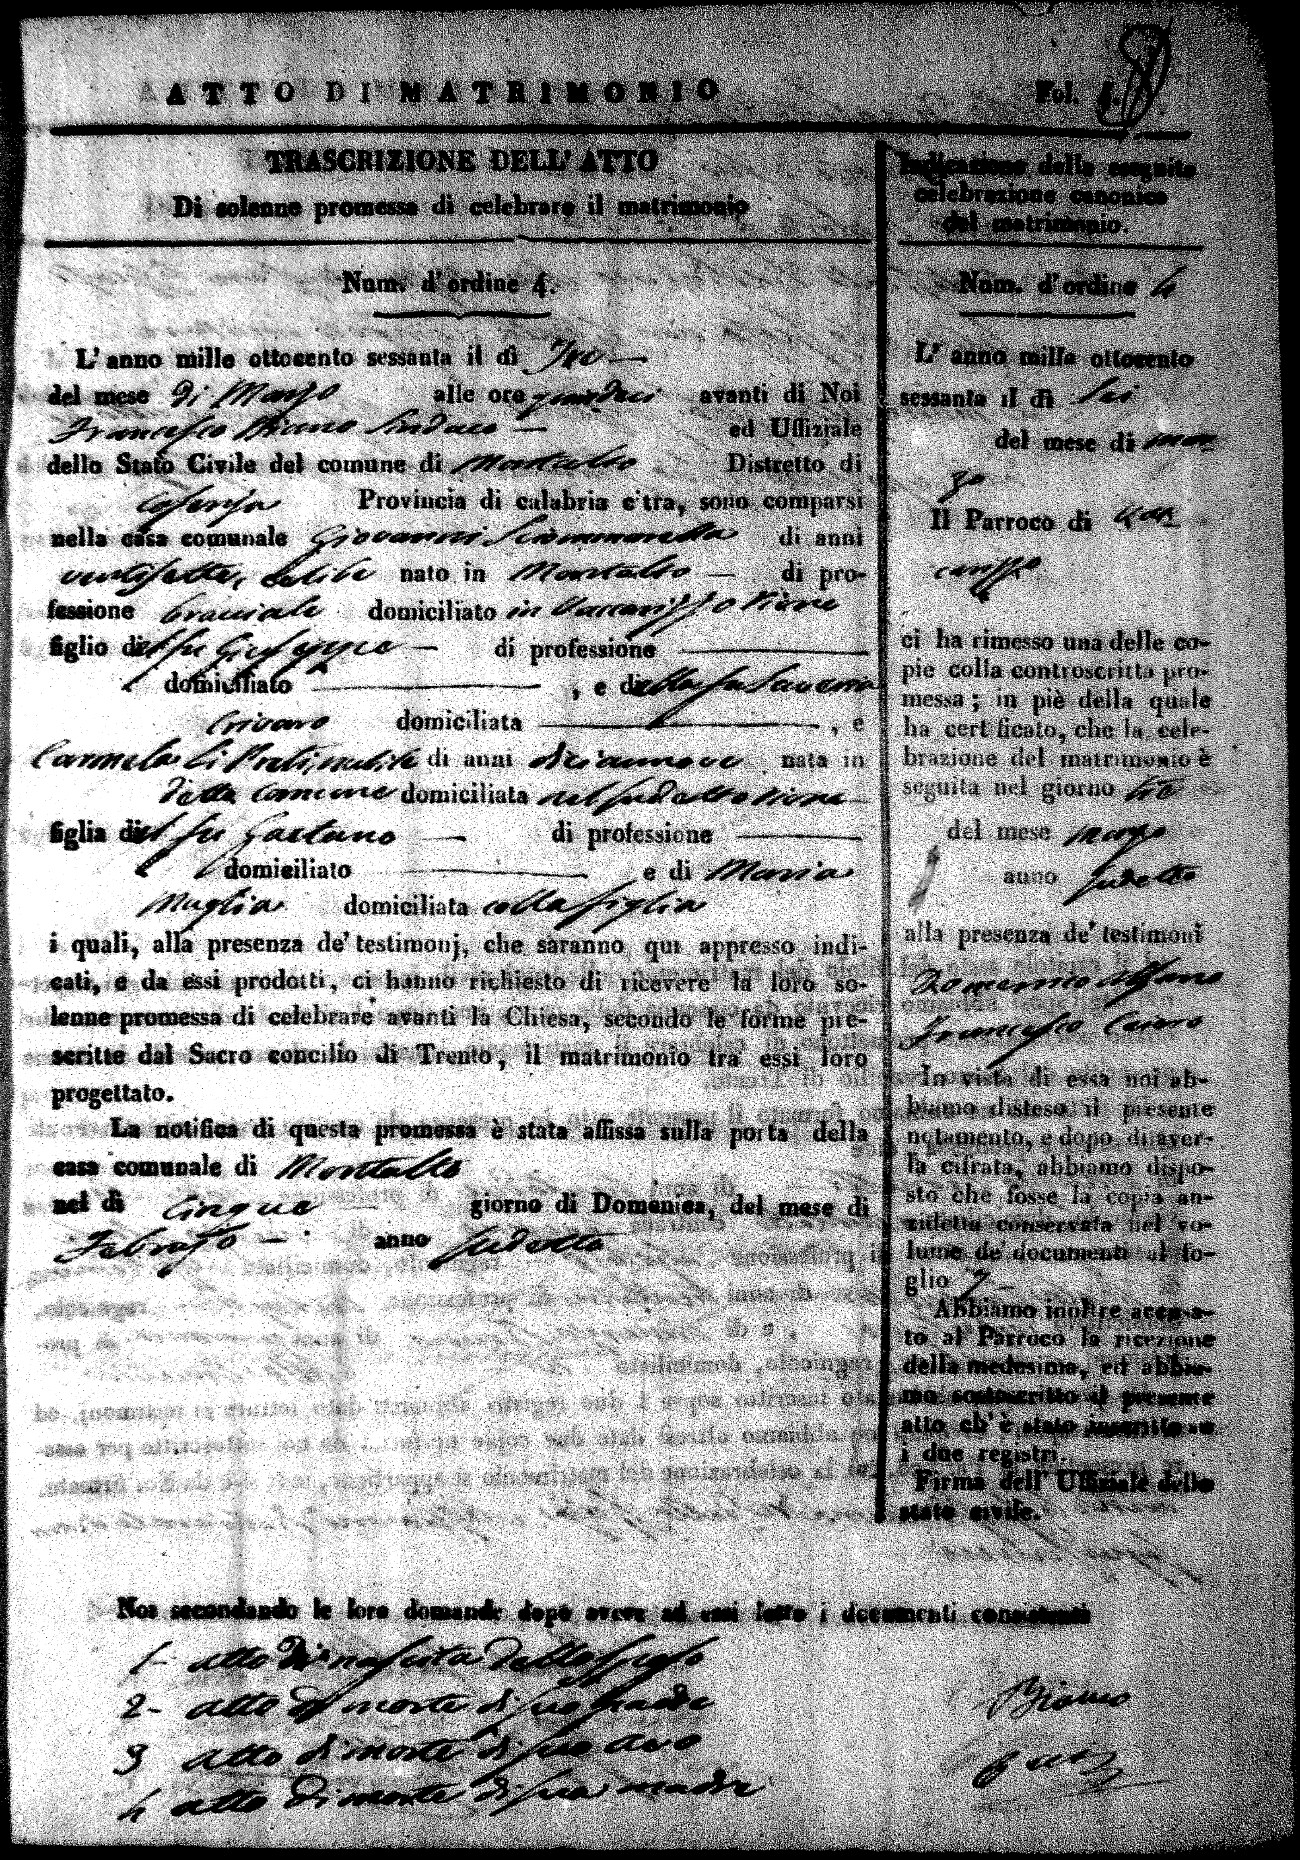 ATTO DI MATRIMONIO
Fol. 4.
TRASCRIZIONE DELL' ATTO
Di solenne promessa di celebrare il matrimonio
Num. d'ordine 4.
L' anno mille ottocento sessanta il dì Tre
del mese di Marzo alle ore quindici avanti di Noi
Francesco Sindaco ed Uffiziale
dello Stato Civile del comune di Montalto Distretto di
Cosenza Provincia di calabria citra, sono comparsi
nella casa comunale Giovanni Scimmarella di anni
ventisette, celibe nato in Montalto di pro-
fessione bracciale domiciliato in Vaccarizzo
figlio del fu Giuseppe di professione
domiciliato , e della fu Saveria
Crivaro domiciliata , e
Carmela di anni diciannove nata in
detto Comune domiciliata nel sudetto
figlia del fu Gaetano di professione
domiciliato e di Maria
Muglia domiciliata colla figlia
i quali, alla presenza de' testimonj, che saranno qui appresso indi-
cati, e da essi prodotti, ci hanno richiesto di ricevere la loro so-
lenne promessa di celebrare avanti la Chiesa, secondo le forme pre-
scritte dal Sacro concilio di Trento, il matrimonio tra essi loro
progettato.
La notifica di questa promessa è stata affissa sulla porta della
casa comunale di Montalto
nel dì Cinque giorno di Domenica, del mese di
Febrajo anno sudetto
Indicazione della seguita
celebrazione canonica
del matrimonio.
Num. d'ordine 4
L' anno mille ottocento
sessanta il dì Sei
del mese di mar
zo
Il Parroco di
ci ha rimesso una delle co-
pie colla controscritta pro-
messa; in piè della quale
ha certificato, che la cele-
brazione del matrimonio è
seguita nel giorno tre
del mese marzo
anno sudetto
alla presenza de' testimoni
Domenico Alfano
Francesco Cairo
In vista di essa noi ab-
biamo disteso il presente
notamento, e dopo di aver-
la cifrata, abbiamo dispo-
sto che fosse la copia an-
zidetta conservata nel vo-
lume de' documenti al fo-
glio 7
Abbiamo inoltre accusa-
to al Parroco la ricezione
della medesima, ed abbia-
mo sottoscritto il presente
atto ch' è stato inscritto su
i due registri.
Firma dell' Uffiziale dello
stato civile.
Noi secondando le loro domande dopo avere ad essi letto i documenti consistenti
1- atto di nascita dello sposo
2- atto di morte di suo padre
3 atto di morte di suo avo
4 atto di morte di sua madre